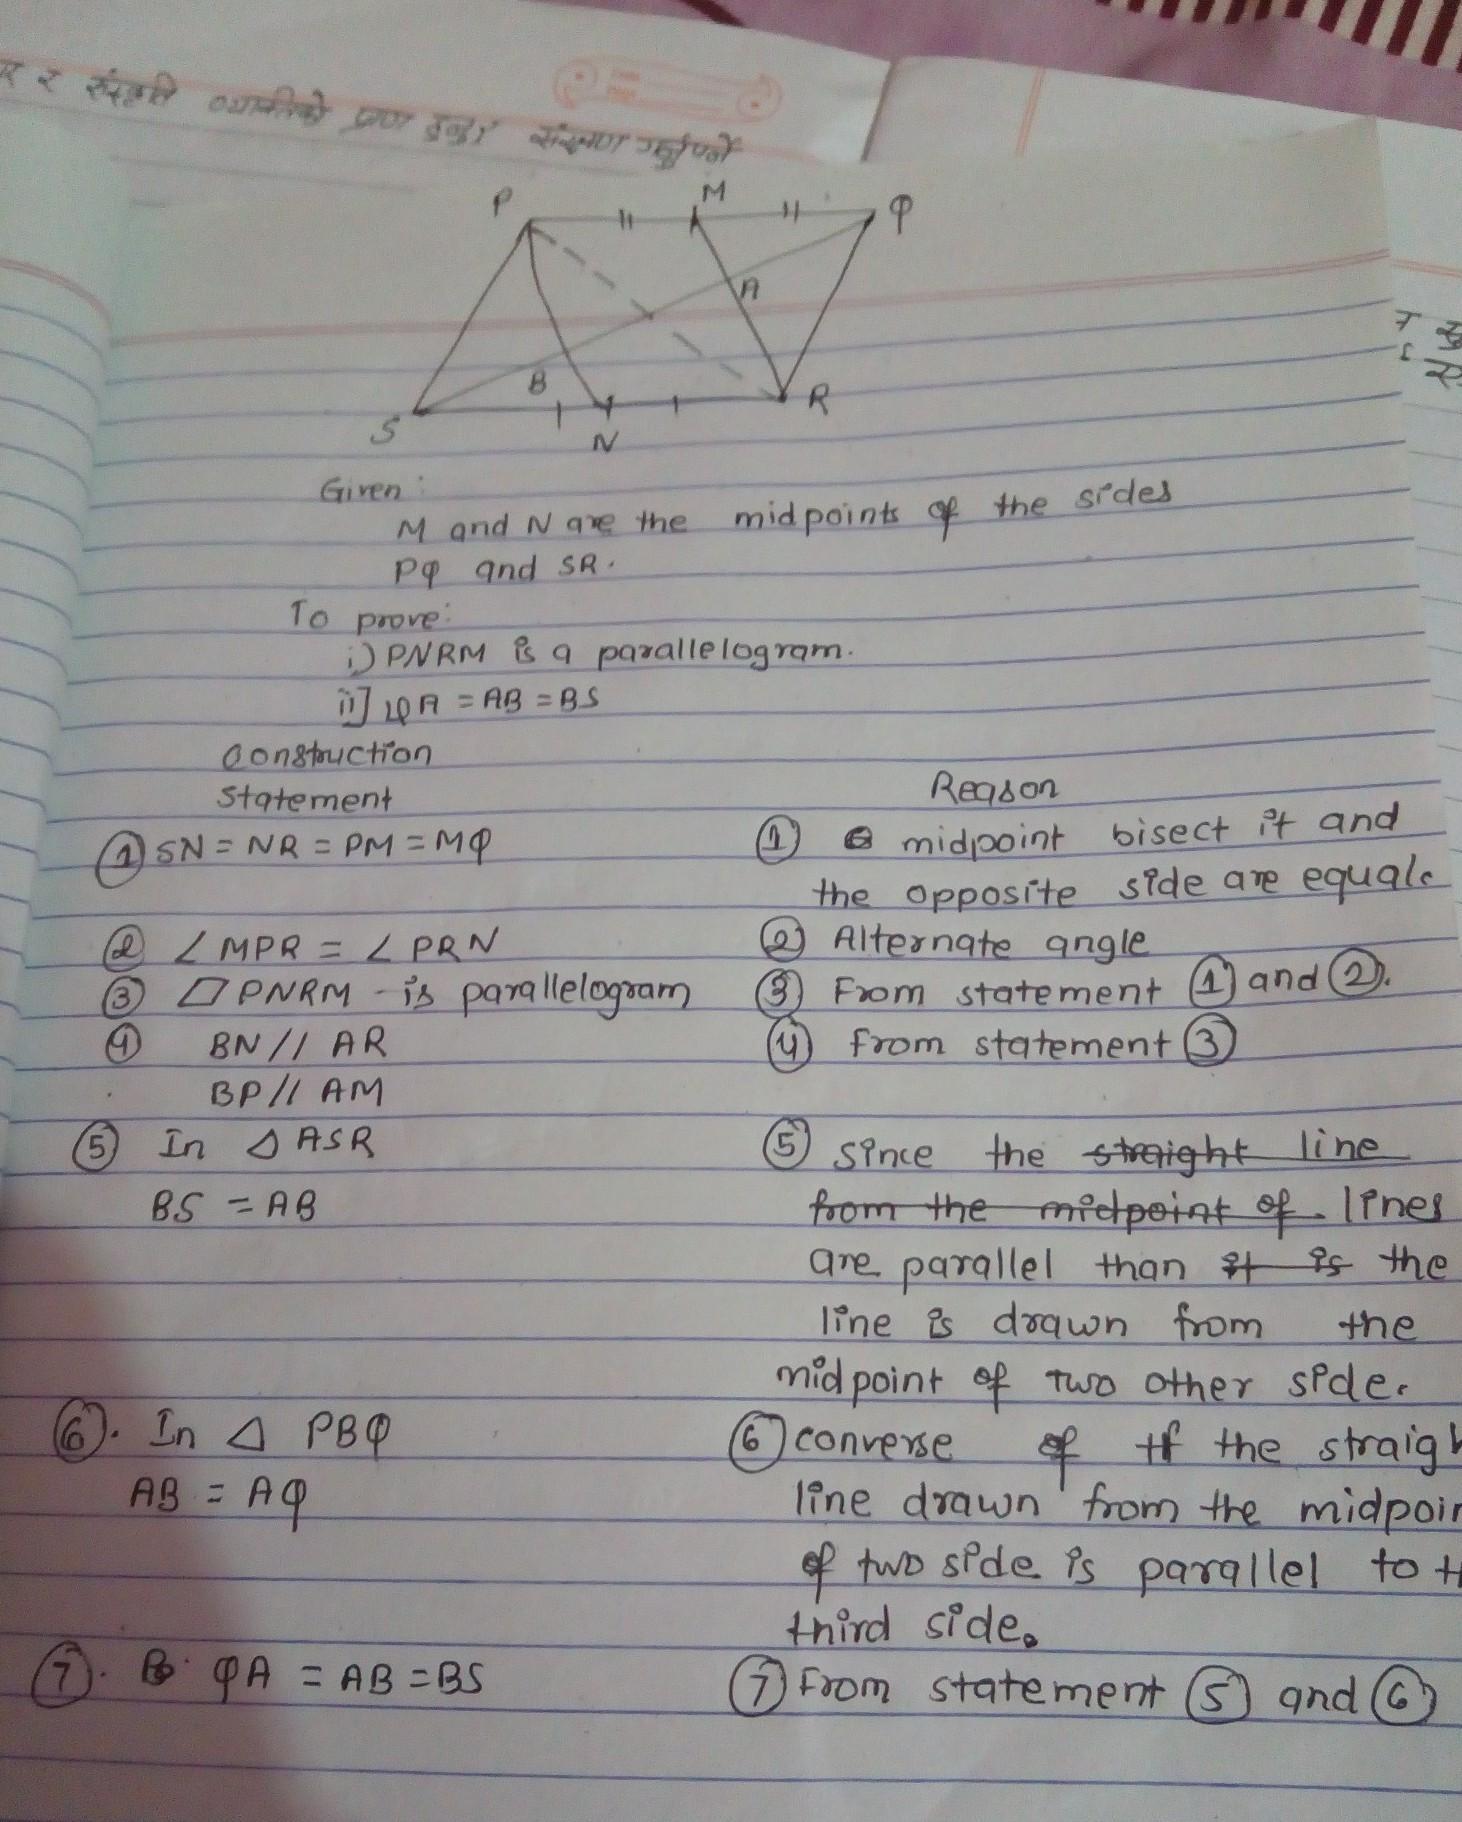 र संस्कृति
P M Q
A
B
S N R
Given:
M and N are the midpoints of the sides
PQ and SR.
To prove:
i) PNRM is a parallelogram.
ii] QA = AB = BS
Construction
Statement Reason
① SN = NR = PM = MQ ① midpoint bisect it and
the opposite side are equal.
② ∠MPR = ∠PRN ② Alternate angle
③ ▱ PNRM - is parallelogram ③ From statement ① and ②.
④ BN // AR ④ from statement ③
BP // AM
⑤ In △ ASR ⑤ since the straight line
BS = AB from the midpoint of lines
are parallel than it is the
line is drawn from the
midpoint of two other side.
⑥. In △ PBQ ⑥ converse of If the straigh
AB = AQ line drawn from the midpoin
of two side is parallel to th
third side.
⑦. QA = AB = BS ⑦ From statement ⑤ and ⑥